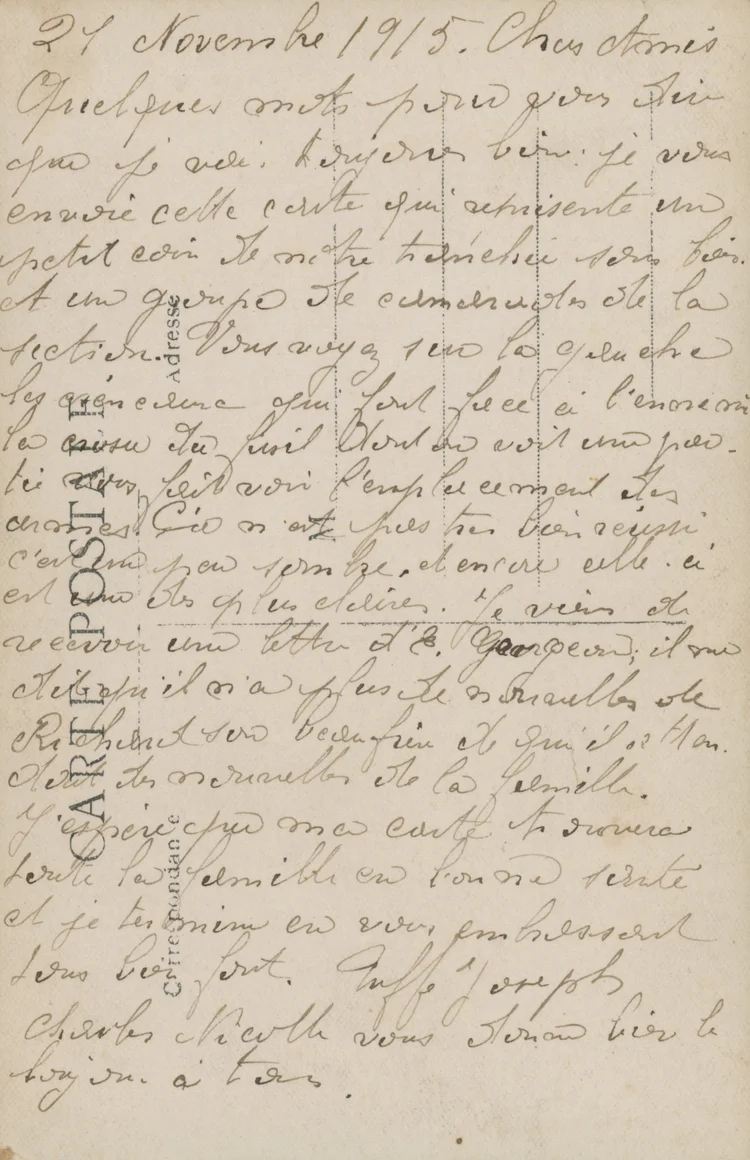 21 Novembre 1915. Chers Amis
Quelques mots pour vous dire
que je vai. toujours bien. je vous
envoie cette carte qui représente un
petit coin de notre tranchée sous bois.
et un groupe de camarades de la
section. Vous voyez sur la gauche
les créneaux qui font face à l'ennemi
la crosse du fusil dont on voit une par-
tie vous fait voir l'emplacement des
armes. Ce n'est pas très bien réussi
c'est un peu sombre. et encore celle-ci
est une des plus claires. Je viens de
recevoir une lettre d'E. Georgeon; il me
dit qu'il n'a plus de nouvelles de
Richard son beau frère et qu'il
des nouvelles de la famille.
J'espère que ma carte trouvera
toute la famille en bonne santé
et je termine en vous embrassant
tous bien fort. Joseph
Charles Nicolle vous donne bien le
bonjour à tous.
CARTE POSTALE
Correspondance
Adresse
M